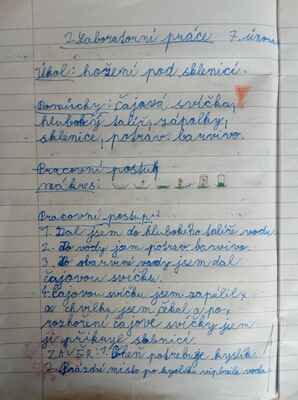 2. Laboratorní práce 7. února
Úkol: hoření pod sklenicí.
Pomůcky: čajová svíčka,
hluboký talíř, zápalky,
sklenice, potrav. barvivo.
Pracovní postup
nákres:
Pracovní postup:
1. Dal jsem do hlubokého talíře vodu
2. do vody jsem potrav. barvivo.
3. do obarvené vody jsem dal
čajovou svíčku.
4. čajovou svíčku jsem zapálil
a chvilku jsem čekal a po
rozhoření čajové svíčky jsem
ji přikryl sklenicí.
ZÁVĚR: 1. Oheň potřebuje kyslík.
2. Prázdní místo po kyslíku vyplnila voda